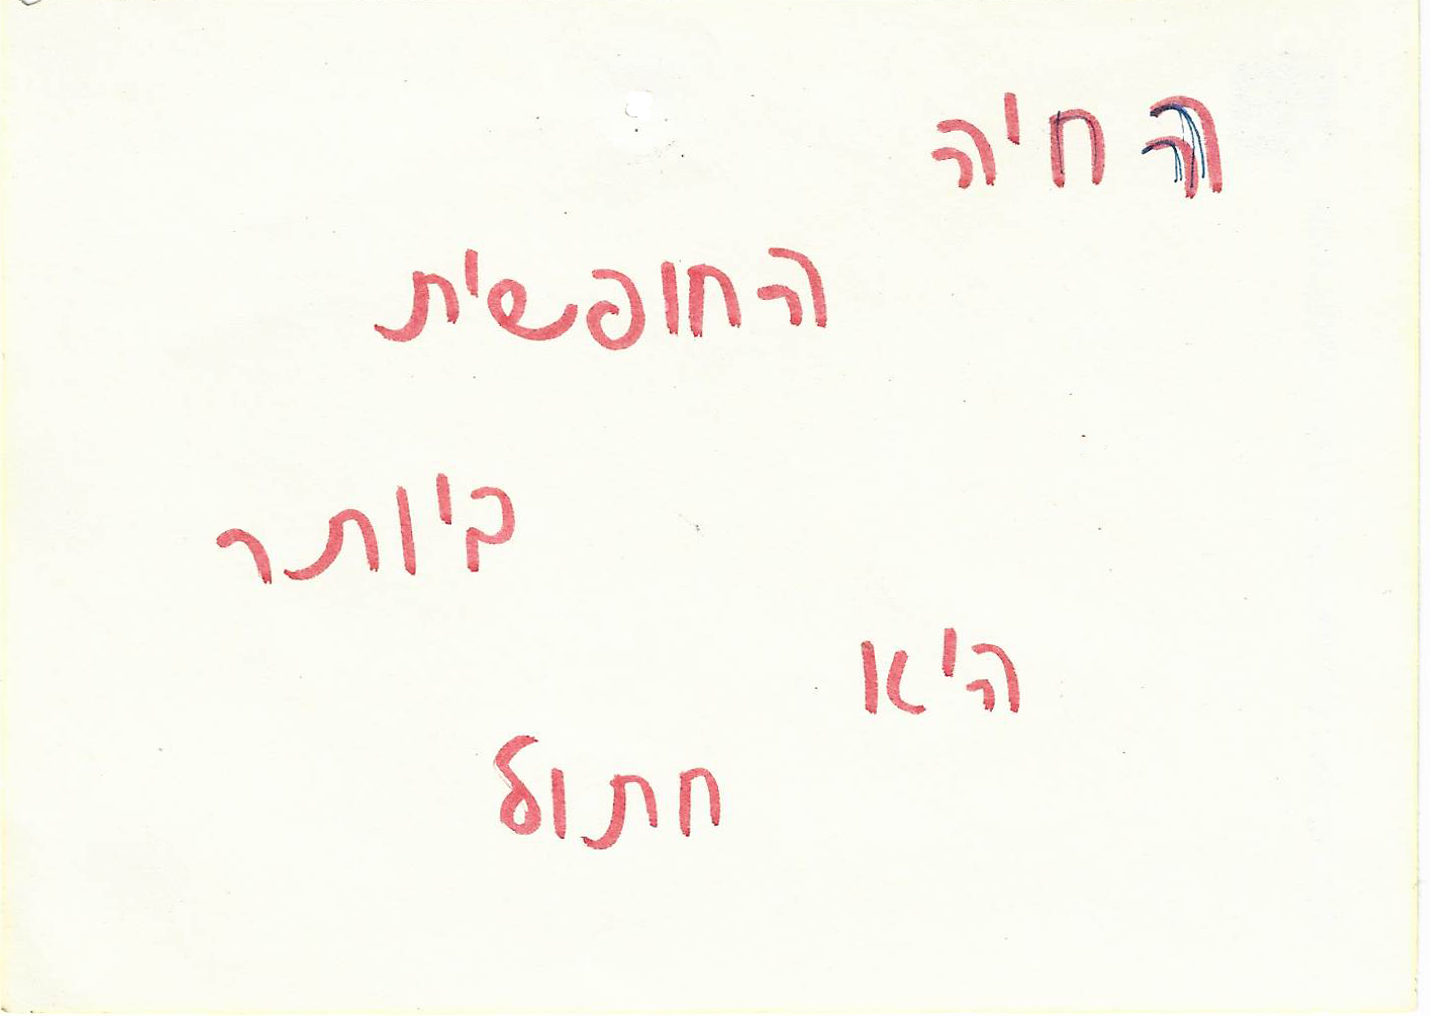 החיה
החופשית
ביותר
היא
חתול